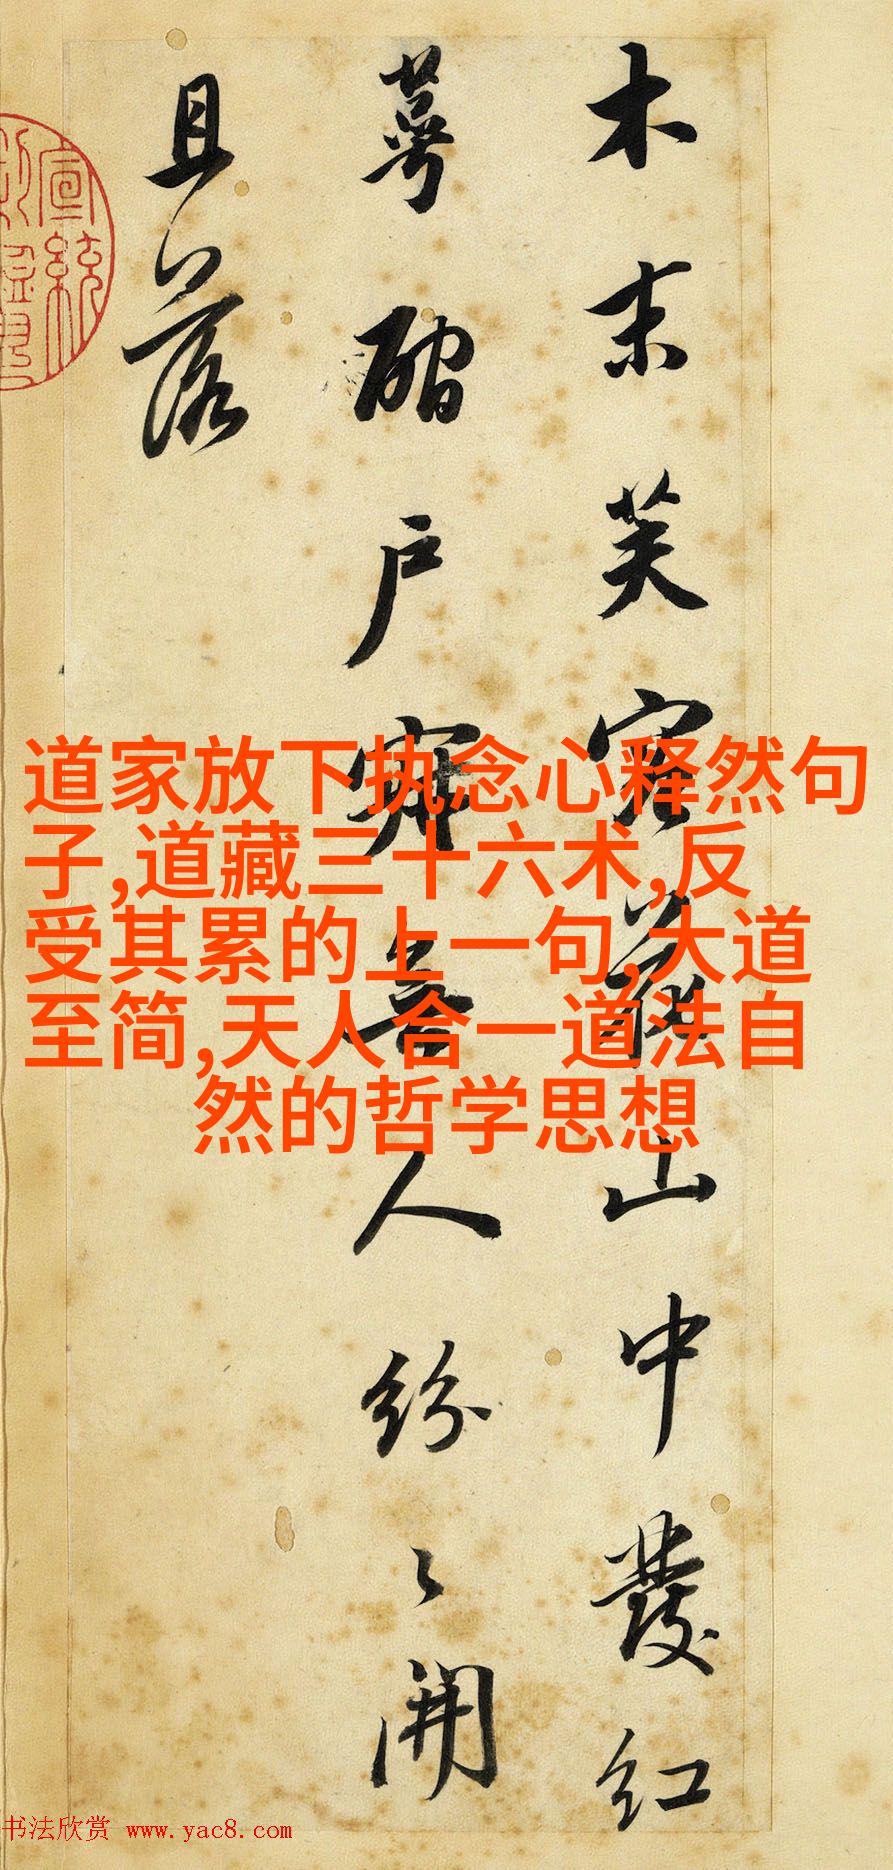 木末芙蓉花山中發紅
萼磵戶寂無人紛〻開
且落
宣統
道家放下执念心释然句
子,道藏三十六术,反
受其累的上一句,大道
至简,天人合一道法自
然的哲学思想
书法欣赏 www.yac8.com